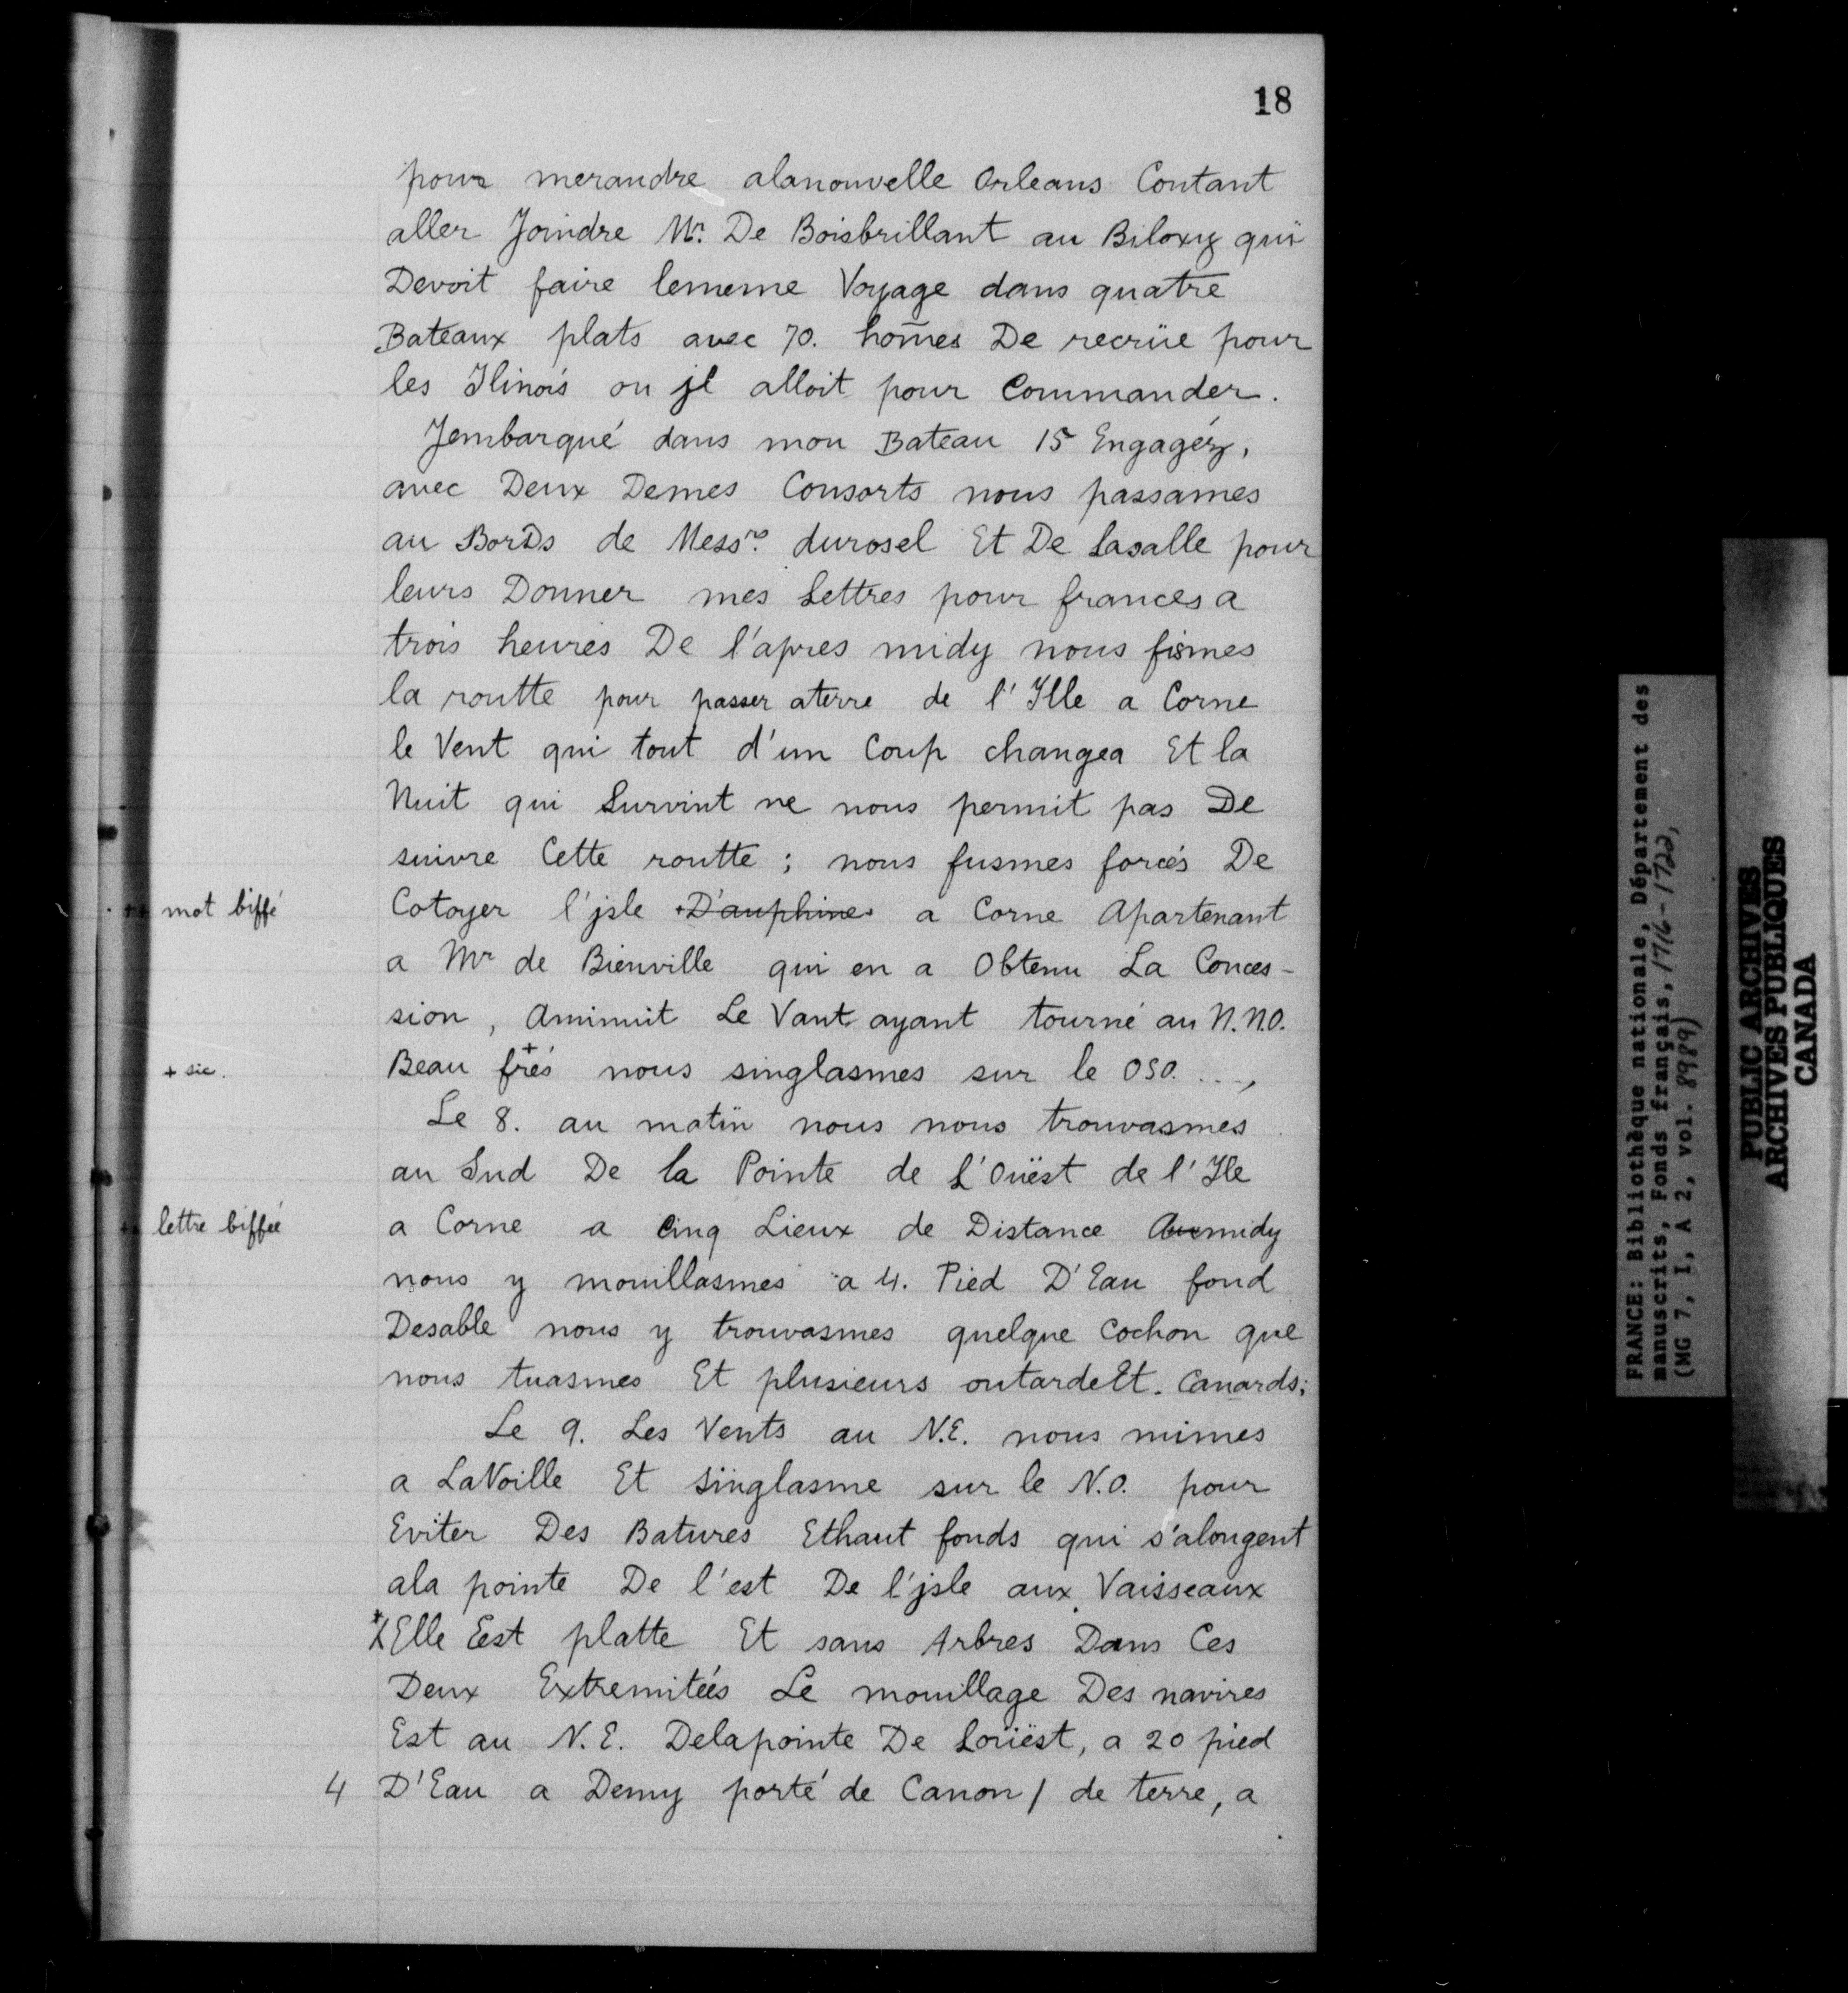 18
pour merandre alanouvelle Orleans Contant
aller Joindre Mr. De Boisbrillant au Biloxy qui
Devoit faire lememe Voyage dans quatre
Bateaux plats avec 70. hom̃es De recrüe pour
les Ilinois ou jl alloit pour Commander.
Jembarqué dans mon Bateau 15 Engagéz,
avec Deux Demes Consorts nous passames
au BorDs de Messrs. durosel Et De Lasalle pour
leurs Donner mes Lettres pour frances a
trois heures De l'apres midy nous fismes
la routte pour passer aterre de l'Ille a Corne
le Vent qui tout d'un Coup changea Et la
Nuit qui Survint ne nous permit pas De
suivre Cette routte ; nous fusmes forcés De
++ mot biffé Cotoyer l'jsle +D'auphine+ a Corne Apartenant
a Mr de Bienville qui en a Obtenu La Conces-
sion, Aminuit Le Vant ayant tourné au N.N.O.
+ sic. Beau frés+ nous singlasmes sur le OSO. ...,
Le 8. au matin nous nous trouvasmes
au Sud De la Pointe de L'Ouëst de l'Ile
++ lettre biffée a Corne a Cinq Lieux de Distance Auemidy
nous y mouillasmes a 4. Pied D'Eau fond
Desable nous y trouvasmes quelque Cochon que
nous tuasmes Et plusieurs outardeEt. Canards;
Le 9. Les Vents au N.E. nous mimes
a LaVoille Et singlasme sur le N.O. pour
Eviter Des Batures Ethaut fonds qui s'alongent
ala pointe De l'est De l'jsle aux Vaisseaux
Elle Eest platte Et sans Arbres Dans Ces
Deux Extremitées Le mouillage Des navires
Est au N.E. Delapointe De Loüëst, a 20 pied
4 D'Eau a Demy porté de Canon / de terre, a
FRANCE: Bibliothèque nationale, Département des
manuscrits, Fonds français, 1716-1722,
(MG 7, I, A 2, vol. 8989)
PUBLIC ARCHIVES
ARCHIVES PUBLIQUES
CANADA